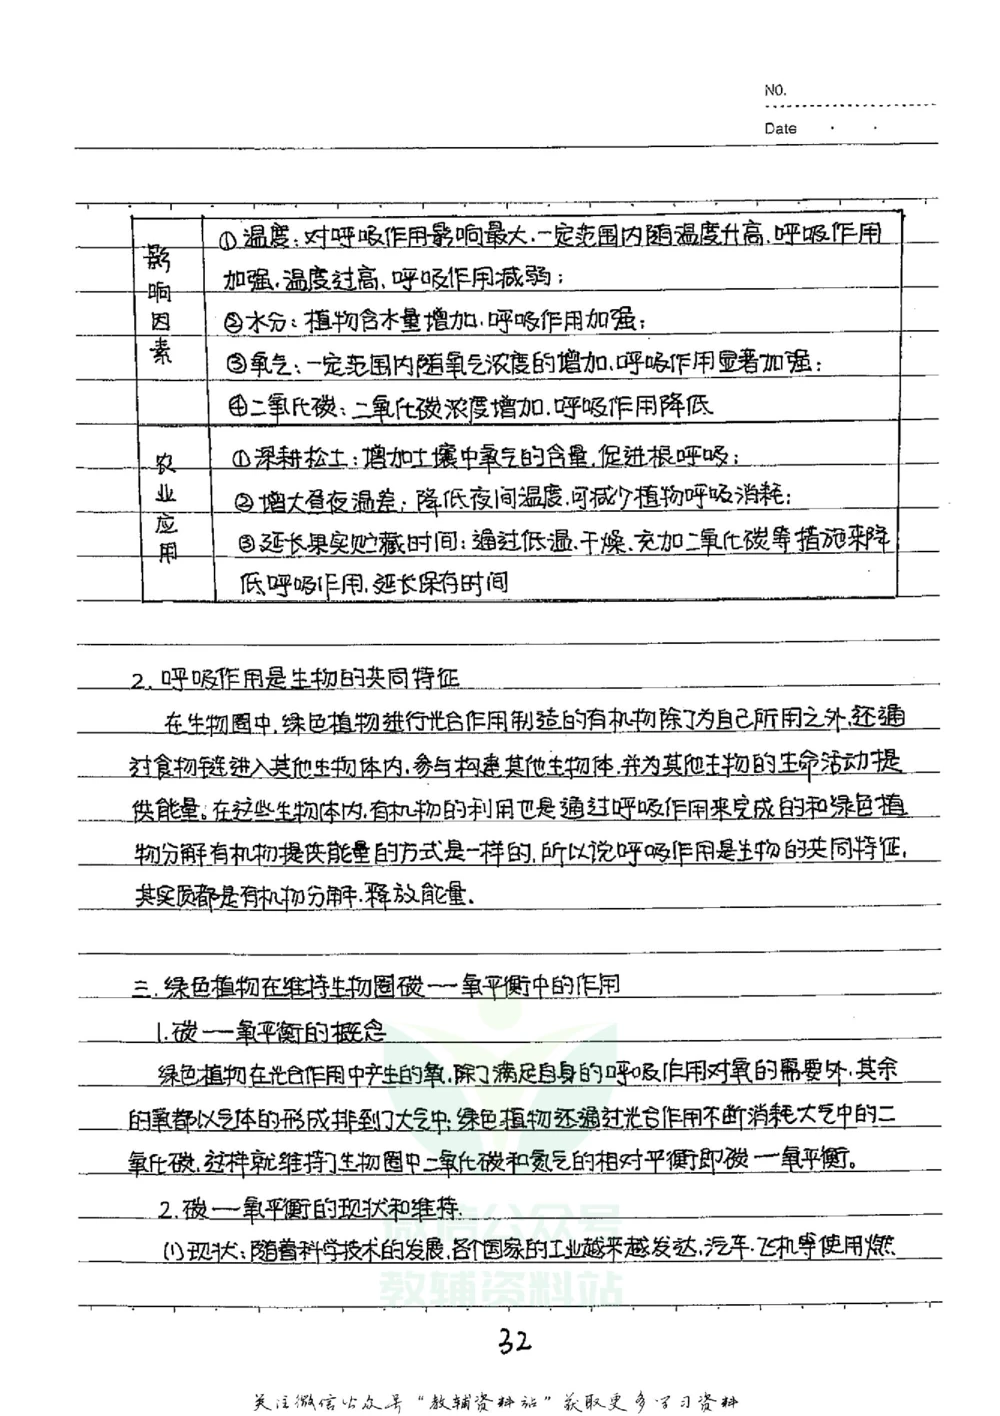 NO.
Date
影响因素
①温度:对呼吸作用影响最大.一定范围内随温度升高.呼吸作用
加强.温度过高、呼吸作用减弱;
②水分:植物含水量增加.呼吸作用加强;
③氧气:一定范围内随氧气浓度的增加.呼吸作用显著加强;
④二氧化碳:二氧化碳浓度增加.呼吸作用降低
农业应用
①深耕松土:增加土壤中氧气的含量.促进根呼吸;
②增大昼夜温差:降低夜间温度.可减少植物呼吸消耗;
③延长果实贮藏时间:通过低温.干燥.充加二氧化碳等措施来降
低呼吸作用.延长保存时间
2.呼吸作用是生物的共同特征
在生物圈中.绿色植物进行光合作用制造的有机物除了为自己所用之外.还通
过食物链进入其他生物体内.参与构建其他生物体.并为其他生物的生命活动提
供能量。在这些生物体内.有机物的利用也是通过呼吸作用来完成的和绿色植
物分解有机物提供能量的方式是一样的.所以说呼吸作用是生物的共同特征.
其实质都是有机物分解.释放能量.
三.绿色植物在维持生物圈碳一氧平衡中的作用
1.碳一氧平衡的概念
绿色植物在光合作用中产生的氧.除了满足自身的呼吸作用对氧的需要外.其余
的氧都以气体的形成排到了大气中;绿色植物还通过光合作用不断消耗大气中的二
氧化碳.这样就维持了生物圈中二氧化碳和氮气的相对平衡即碳一氧平衡。
2.碳一氧平衡的现状和维持.
(1)现状:随着科学技术的发展.各个国家的工业越来越发达.汽车.飞机等使用燃
微信公众号
教辅资料站
32
关注微信公众号“教辅资料站”获取更多学习资料